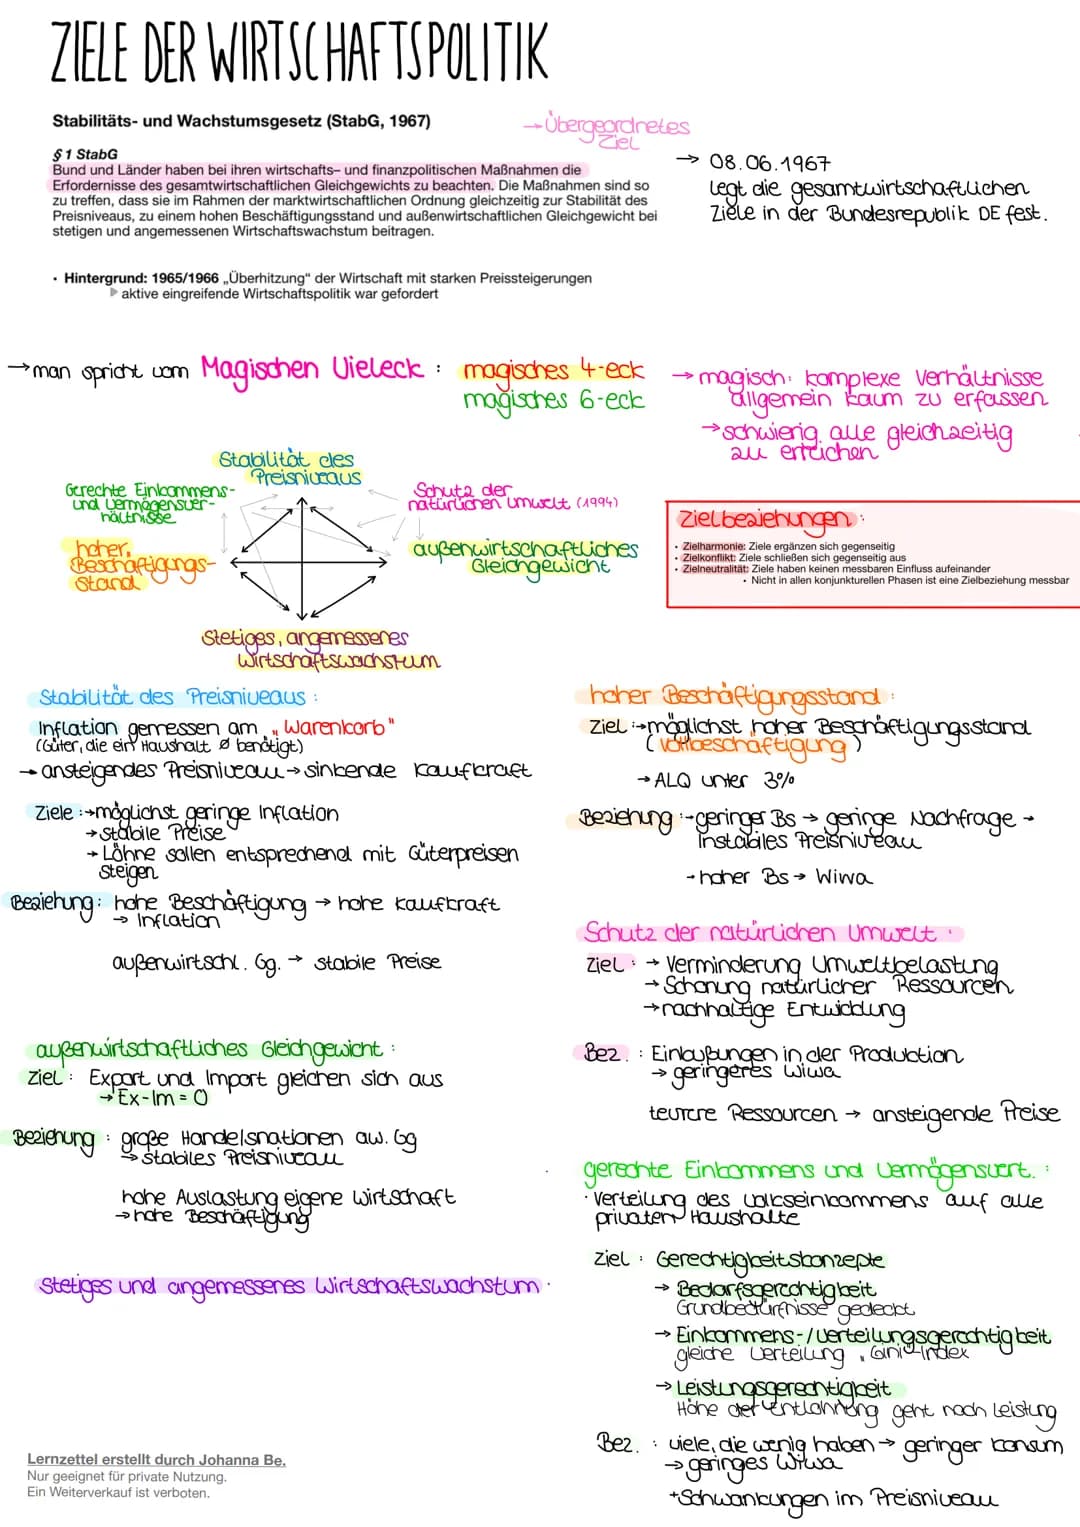 ZIELE DER WIRTSCHAFTSPOLITIK
Stabilitäts- und Wachstumsgesetz (StabG, 1967)
→ Übergeordnetes
Ziel
§ 1 StabG
Bund und Länder haben bei ihren wirtschafts– und finanzpolitischen Maßnahmen die
Erfordernisse des gesamtwirtschaftlichen Gleichgewichts zu beachten. Die Maßnahmen sind so
zu treffen, dass sie im Rahmen der marktwirtschaftlichen Ordnung gleichzeitig zur Stabilität des
Preisniveaus, zu einem hohen Beschäftigungsstand und außenwirtschaftlichen Gleichgewicht bei
stetigen und angemessenen Wirtschaftswachstum beitragen.
→ 08.06.1967
legt die gesamtwirtschaftlichen
Ziele in der Bundesrepublik DE fest.
• Hintergrund: 1965/1966 „Überhitzung“ der Wirtschaft mit starken Preissteigerungen
aktive eingreifende Wirtschaftspolitik war gefordert
→ man spricht vom Magischen Vieleck : magisches 4-eck
magisches 6-eck
→ magisch: komplexe Verhältnisse
allgemein kaum zu erfassen
→ schwierig, alle gleichzeitig
zu erreichen
Stabilität des
Preisniveaus
Gerechte Einkommens-
und Vermögensver-
hältnisse
Schutz der
natürlichen Umwelt (1994)
hoher
Beschäftigungs-
stand
außenwirtschaftliches
Gleichgewicht
Stetiges, angemessenes
Wirtschaftswachstum
Zielbeziehungen :
• Zielharmonie: Ziele ergänzen sich gegenseitig
• Zielkonflikt: Ziele schließen sich gegenseitig aus
• Zielneutralität: Ziele haben keinen messbaren Einfluss aufeinander
• Nicht in allen konjunkturellen Phasen ist eine Zielbeziehung messbar
Stabilität des Preisniveaus :
Inflation gemessen am „Warenkorb"
(Güter, die ein Haushalt ø benötigt)
→ ansteigendes Preisniveau → sinkende Kaufkraft
Ziele : → möglichst geringe Inflation
→ stabile Preise
→ Löhne sollen entsprechend mit Güterpreisen
steigen
Beziehung : hohe Beschäftigung → hohe Kaufkraft
→ Inflation
außenwirtschl. Gg. → stabile Preise
außenwirtschaftliches Gleichgewicht :
Ziel : Export und Import gleichen sich aus
→ Ex-Im = 0
Beziehung : große Handelsnationen aw. Gg
→ stabiles Preisniveau
hohe Auslastung eigene Wirtschaft
→ hohe Beschäftigung
Stetiges und angemessenes Wirtschaftswachstum .
hoher Beschäftigungsstand :
Ziel : → möglichst hoher Beschäftigungsstand
( Vollbeschäftigung )
→ ALQ unter 3%
Beziehung : → geringer Bs → geringe Nachfrage →
Instabiles Preisniveau
→ hoher Bs → Wiwa
Schutz der natürlichen Umwelt :
Ziel : → Verminderung Umweltbelastung
→ Schonung natürlicher Ressourcen
→ nachhaltige Entwicklung
Bez. : Einbußungen in der Produktion
→ geringeres Wiwa
teurere Ressourcen → ansteigende Preise
gerechte Einkommens und Vermögensvert. :
· Verteilung des Volkseinkommens auf alle
privaten Haushalte
Ziel : Gerechtigkeitskonzepte
→ Bedarfsgerechtigkeit
Grundbedürfnisse gedeckt
→ Einkommens-/Verteilungsgerechtigkeit
gleiche Verteilung, Gini-Index
→ Leistungsgerechtigkeit
Höhe der Entlohnung geht nach Leistung
Bez. : viele, die wenig haben → geringer Konsum
→ geringes Wiwa
+ Schwankungen im Preisniveau
Lernzettel erstellt durch Johanna Be.
Nur geeignet für private Nutzung.
Ein Weiterverkauf ist verboten.